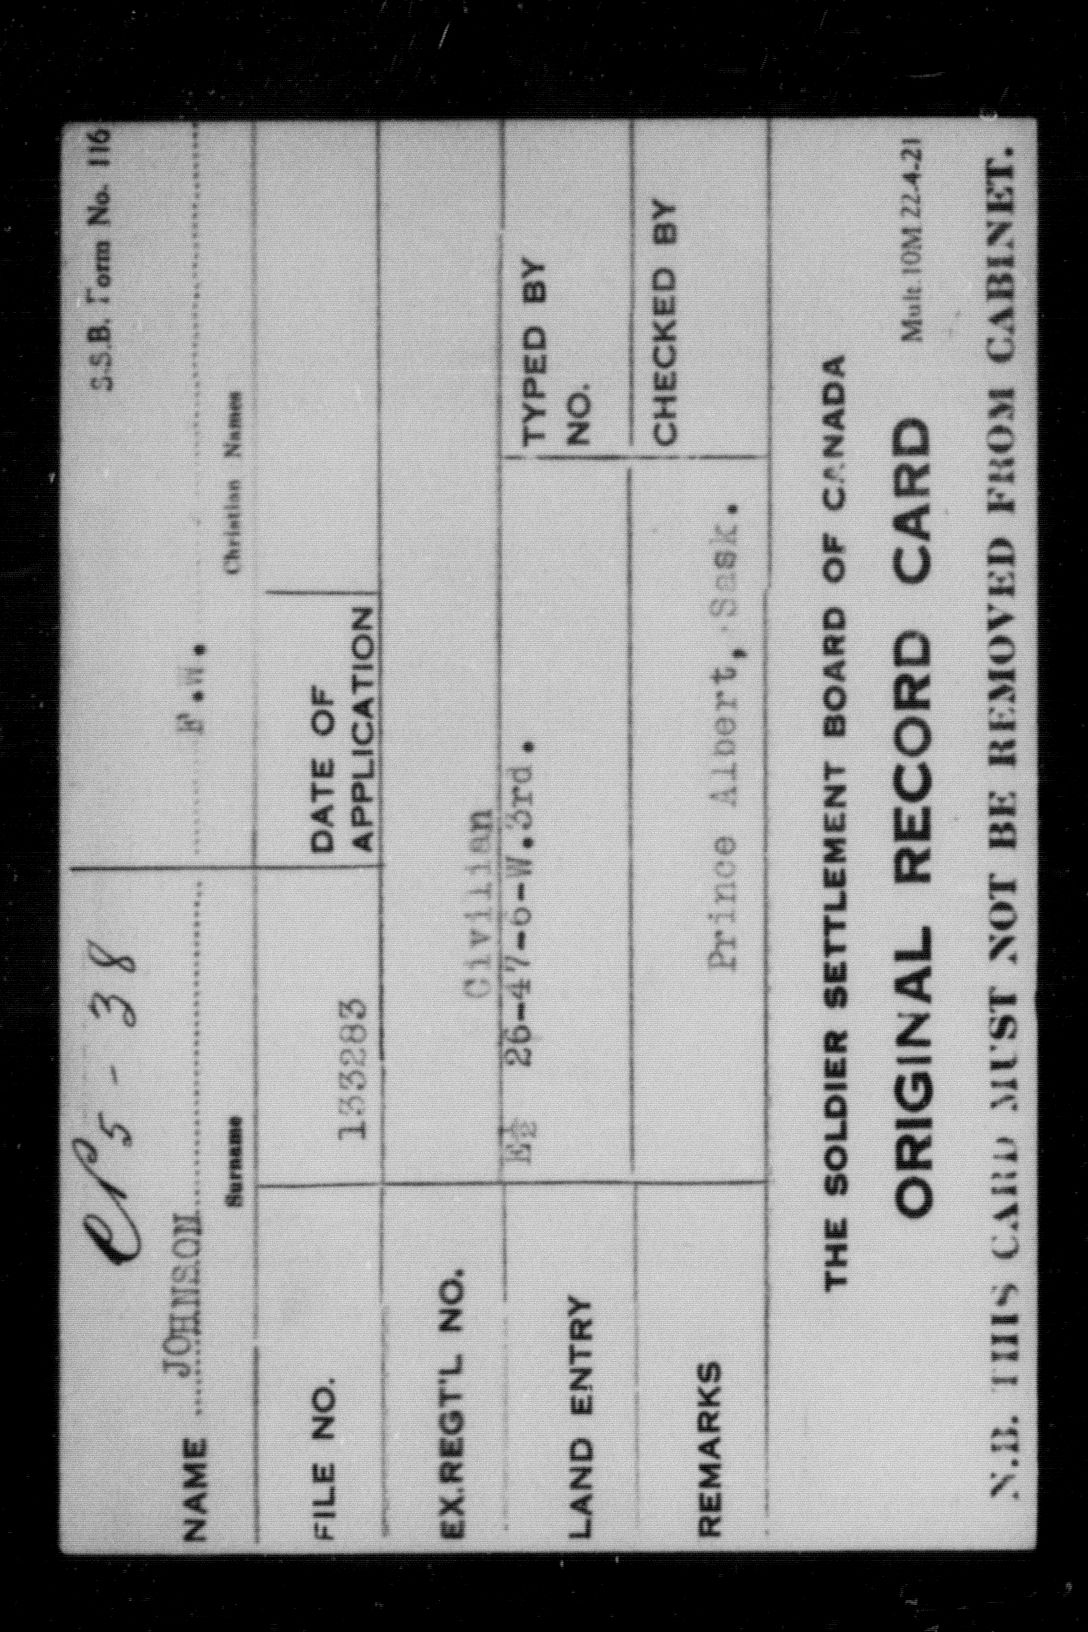 S.S.B. Form No. 116
CP 5 - 38
NAME JOHNSON F.W.
Surname Christian Names
FILE NO. 133283 DATE OF APPLICATION
EX.REGT'L NO. Civilian
LAND ENTRY E½ 26-47-6-W.3rd.
TYPED BY
NO.
REMARKS Prince Albert, Sask.
CHECKED BY
THE SOLDIER SETTLEMENT BOARD OF CANADA
ORIGINAL RECORD CARD Mult. 10M 22-4-21
N.B. THIS CARD MUST NOT BE REMOVED FROM CABINET.